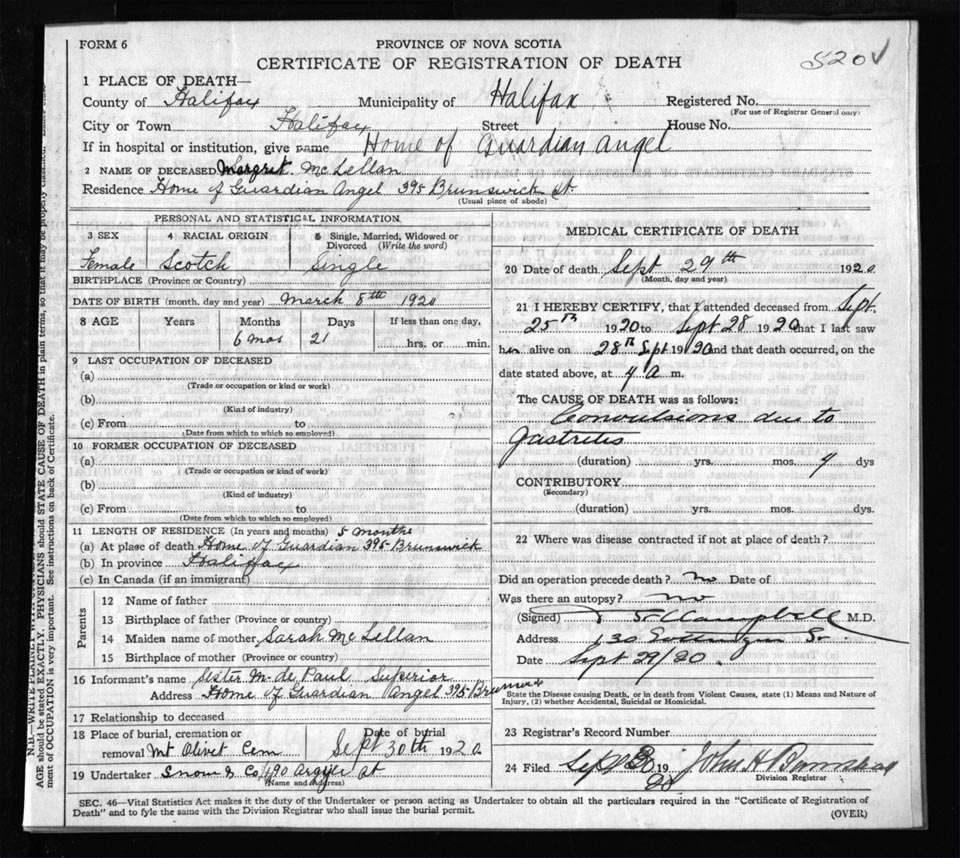 FORM 6
PROVINCE OF NOVA SCOTIA
CERTIFICATE OF REGISTRATION OF DEATH
520 ✓
1 PLACE OF DEATH—
County of Halifax Municipality of Halifax Registered No.
(For use of Registrar General only)
City or Town Halifax Street House No.
If in hospital or institution, give name Home of Guardian Angel
2 NAME OF DECEASED Margret Mc Lellan
Residence Home of Guardian Angel 395 Brunswick St
(Usual place of abode)
PERSONAL AND STATISTICAL INFORMATION
3 SEX 4 RACIAL ORIGIN 5 Single, Married, Widowed or Divorced (Write the word)
Female Scotch Single
BIRTHPLACE (Province or Country)
DATE OF BIRTH (month, day and year) March 8th 1920
8 AGE Years Months Days If less than one day,
6 mos 21 hrs. or min.
9 LAST OCCUPATION OF DECEASED
(a)
(Trade or occupation or kind or work)
(b)
(Kind of industry)
(c) From to
(Date from which to which so employed)
10 FORMER OCCUPATION OF DECEASED
(a)
(Trade or occupation or kind of work)
(b)
(Kind of industry)
(c) From to
(Date from which to which so employed)
11 LENGTH OF RESIDENCE (In years and months) 5 months
(a) At place of death Home of Guardian 395 Brunswick
(b) In province Halifax
(c) In Canada (if an immigrant)
Parents
12 Name of father
13 Birthplace of father (Province or country)
14 Maiden name of mother Sarah Mc Lellan
15 Birthplace of mother (Province or country)
16 Informant's name Sister M. de Paul Superior
Address Home of Guardian Angel 395 Brunswick
17 Relationship to deceased
18 Place of burial, cremation or removal Mt Olivet Cem
Date of burial Sept 30th 1920
19 Undertaker Snow & Co, 90 Argyle St
(Name and Address)
MEDICAL CERTIFICATE OF DEATH
20 Date of death Sept 29th 1920
(Month, day and year)
21 I HEREBY CERTIFY, that I attended deceased from Sept.
25th 1920 to Sept 28 1920 that I last saw
her alive on 28th Sept 1920 and that death occurred, on the
date stated above, at 4 a m.
The CAUSE OF DEATH was as follows:
Convulsions due to
Gastritis
(duration) yrs. mos. 4 dys
CONTRIBUTORY
(Secondary)
(duration) yrs. mos. dys.
22 Where was disease contracted if not at place of death?
Did an operation precede death? no Date of
Was there an autopsy? no
(Signed) Campbell M.D.
Address 130
Date Sept 29/20
State the Disease causing Death, or in death from Violent Causes, state (1) Means and Nature of
Injury, (2) whether Accidental, Suicidal or Homicidal.
23 Registrar's Record Number
24 Filed Sept 30 1920 John H
Division Registrar
SEC. 46—Vital Statistics Act makes it the duty of the Undertaker or person acting as Undertaker to obtain all the particulars required in the "Certificate of Registration of
Death" and to fyle the same with the Division Registrar who shall issue the burial permit.
(OVER)
AGE should be stated EXACTLY. PHYSICIANS should STATE CAUSE OF DEATH in plain terms, so that it may be properly
of OCCUPATION is very important. See instructions on back of Certificate.